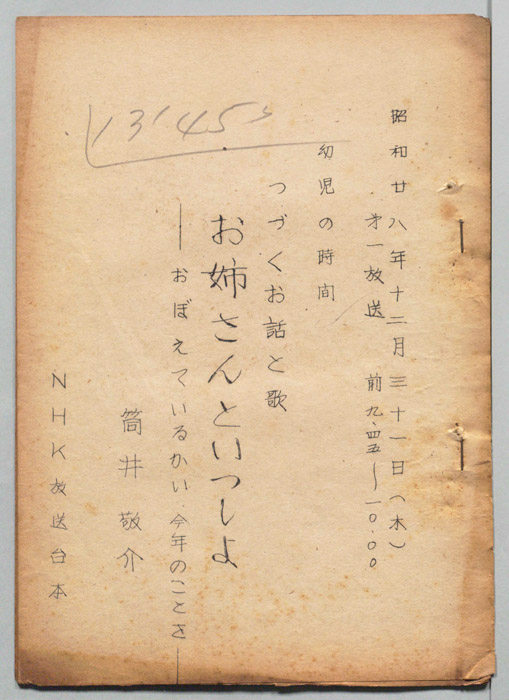 昭和廿八年十二月三十一日(木)
第一放送 前九.四五〜一〇.〇〇
幼児の時間
つづくお話と歌
お姉さんといつしよ
――おぼえているかい.今年のことさ――
筒井敬介
NHK放送台本
13'45"